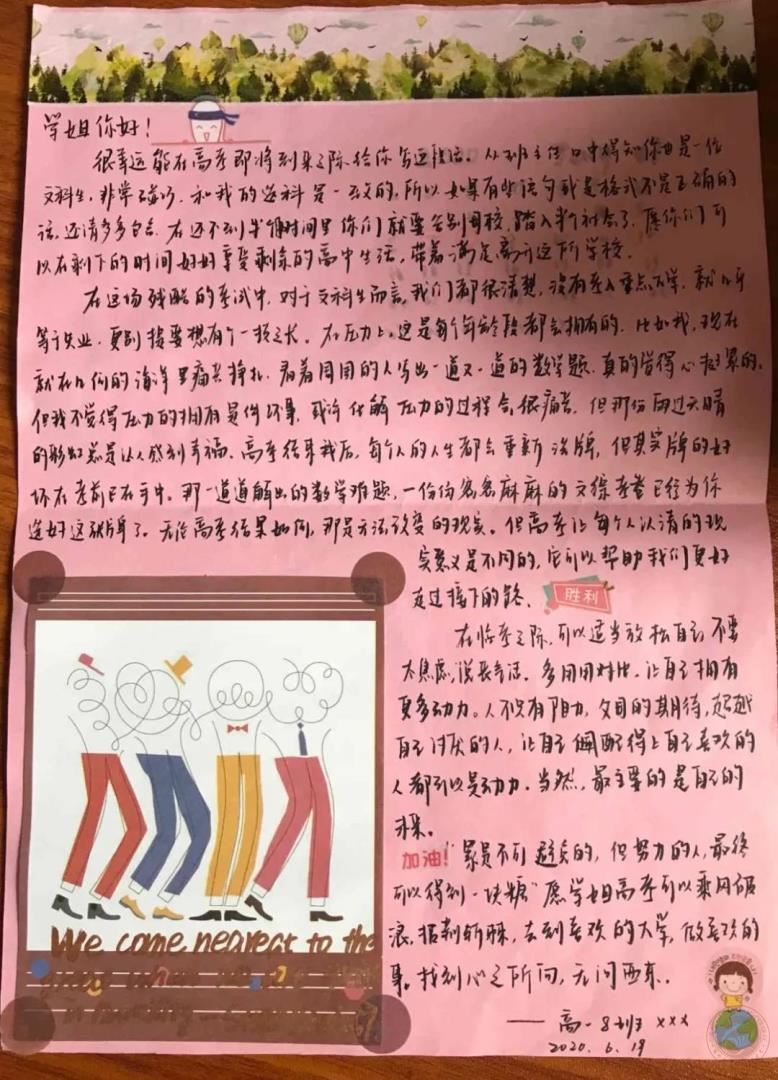 学姐你好！
很幸运能在高考即将到来之际给你写这段话。从班主任口中得知你也是一位
文科生，非常碰巧，和我的选科是一致的，所以如果有些语句或是格式不是正确的
话，还请多多包含。在还不到半个月时间里你们就要告别母校，踏入半个社会了，愿你们可
以在剩下的时间好好享受剩余的高中生活，带着满足离开这所学校。
在这场残酷的考试中，对于文科生而言，我们都很清楚，没有考入重点大学，就几乎
等于失业，更别提要想有个一技之长。在压力上，这是每个年龄段都会拥有的，比如我，现在
就在几何的海洋里痛苦挣扎，看着周围的人写出一道又一道的数学题，真的觉得心挺累的。
但我不觉得压力的拥有是件坏事，或许化解压力的过程会很痛苦，但那份雨过天晴
的彩虹总是让人感到幸福。高考结束以后，每个人的人生都会重新洗牌，但其实牌的好
坏在考前已在手中。那一道道解出的数学难题，一份份密密麻麻的文综考卷已经为你
选好这张牌了。无论高考结果如何，那是无法改变的现实。但高考让每个人认清的现
实意义是不同的，它可以帮助我们更好
走过接下的路。
胜利
在临考之际，可以适当放松自己，不要
太焦虑，说丧气话。多用用对比，让自己拥有
更多动力。人不只有阻力，父母的期待，超越
自己讨厌的人，让自己佩配得上自己喜欢的
人都可以是动力。当然，最主要的是自己的
未来。
加油！
"累是不可避免的，但努力的人，最终
可以得到一块糖"愿学姐高考可以乘风破
浪，披荆斩棘，去到喜欢的大学，做喜欢的
事。找到心之所向，无问西东。
——高一8班 ×××
2020.6.19
We come nearest to the
great when we are
in humility